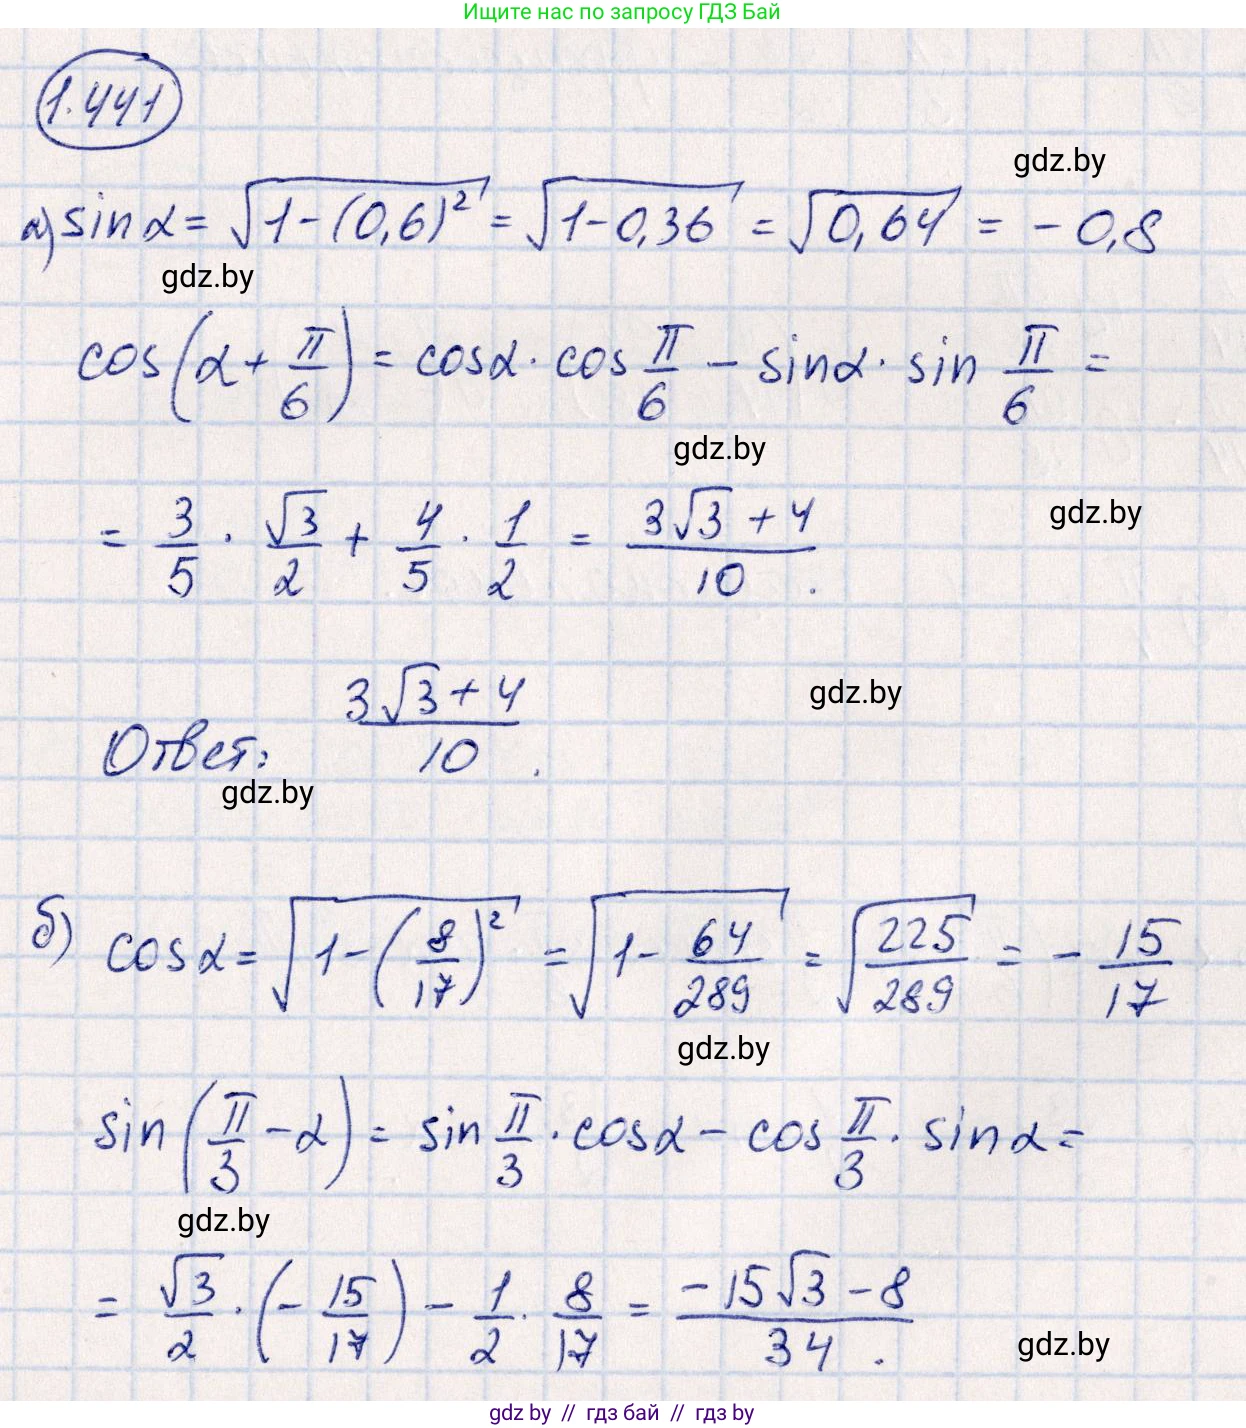 Ищите нас по запросу ГДЗ Бай
1.441
gdz.by
а) sin α = √(1-(0,6)²) = √(1-0,36) = √(0,64) = -0,8
gdz.by
cos(α + π/6) = cos α · cos π/6 - sin α · sin π/6 =
gdz.by
= 3/5 · √3/2 + 4/5 · 1/2 = (3√3 + 4)/10.
gdz.by
Ответ: (3√3 + 4)/10.
gdz.by
gdz.by
б) cos α = √(1-(8/17)²) = √(1 - 64/289) = √(225/289) = - 15/17
gdz.by
sin(π/3 - α) = sin π/3 · cos α - cos π/3 · sin α =
gdz.by
= √3/2 · (- 15/17) - 1/2 · 8/17 = (-15√3 - 8)/34.
gdz.by
gdz by // гдз бай // гдз by